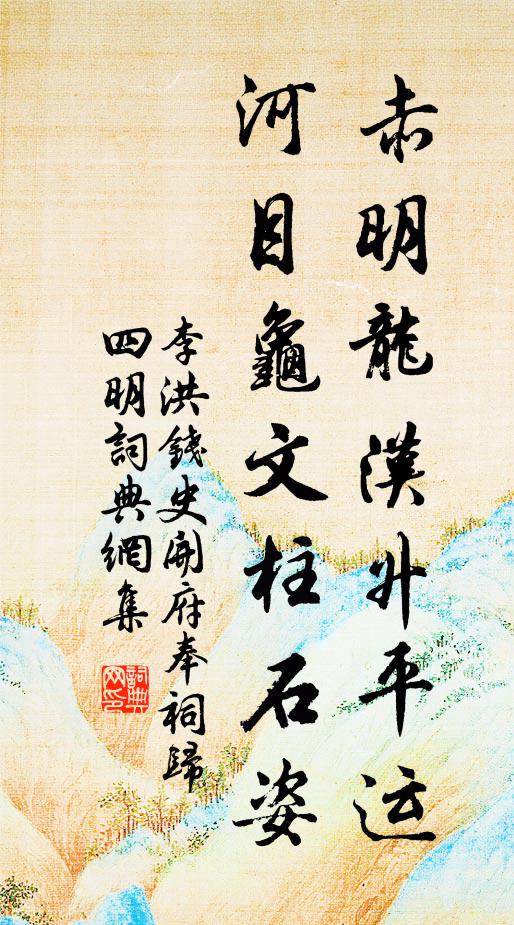 赤明龍漢升平运
河目龜文柱石姿
李洪錢史開府奉祠歸
四明詞典網集
詞典網印